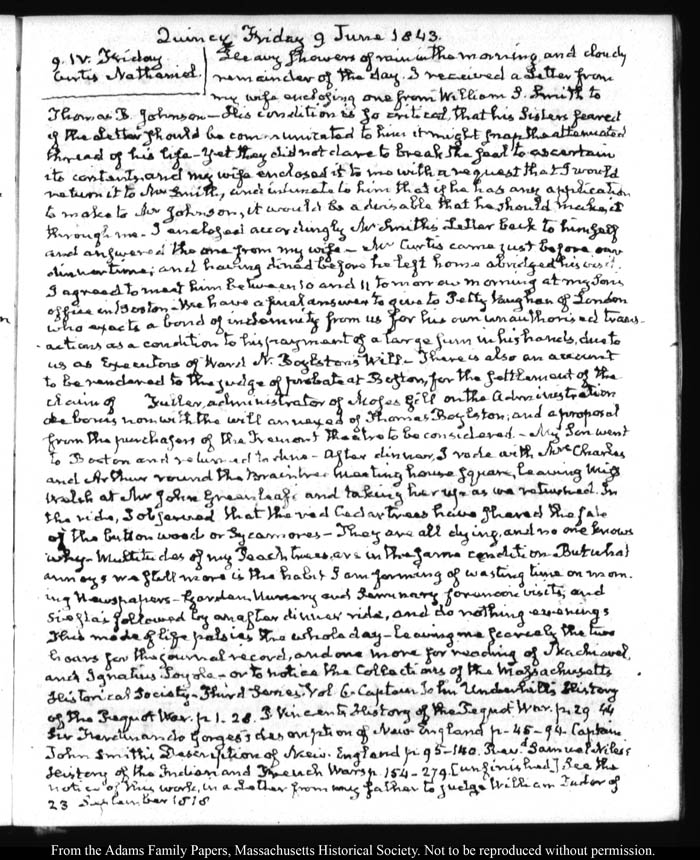 Quincy Friday 9 June 1843.
9. IV. Friday
Curtis Nathaniel.
Heavy showers of rain in the morning and cloudy
remainder of the day. I received a Letter from
my wife enclosing one from William S. Smith to
Thomas B. Johnson — His condition is so critical that his Sisters feared
if the Letter should be communicated to him it might snap the attenuated
thread of his life — Yet they did not dare to break the seal to ascertain
its contents, and my wife enclosed it to me with a request that I would
return it to Mr Smith, and intimate to him that if he has any application
to make to Mr Johnson, it would be advisable that he should make it
through me. I enclosed accordingly Mr Smith's Letter back to himself
and answered the one from my wife — Mr Curtis came just before our
dinner time; and having dined before he left home abridged his visit.
I agreed to meet him between 10 and 11 tomorrow morning at my Son's
office in Boston — We have a final answer to give to Petty Vaughan of London
who exacts a bond of indemnity from us for his own unauthorised trans-
actions as a condition to his payment of a large sum in his hands, due to
us as Executors of Ward N. Boylston's Will — There is also an account
to be rendered to the judge of probate at Boston, for the settlement of the
claim of Fuller, administrator of Moses Gill on the Administration
de bonis non with the will annexed of Thomas Boylston; and a proposal
from the purchasers of the Tremont Theatre to be considered. — My Son went
to Boston and returned to dine — After dinner, I rode with Mrs Charles
and Arthur round the Braintree meeting house Square, leaving Miss
Welsh at Mr John Greenleaf's and taking her up as we returned. In
the ride, I observed that the red Cedar trees have shared the fate
of the button wood or Sycamores — They are all dying, and no one knows
why — Multitudes of my Peach trees, are in the same condition. But what
annoys me still more is the habit I am forming of wasting time on morn-
ing Newspapers — Garden, Nursery and Seminary for uncore visits, and
Siestas followed by an after dinner ride, and do nothing evenings
This mode of life palsies the whole day — leaving me scarcely the two
hours for the journal record, and one more for reading of Machiavel,
and Ignatius Loyola — or to notice the Collections of the Massachusetts
Historical Society — Third Series. Vol. 6. Captain John Underhill's History
of the Pequot War. p 1. 28. P Vincent's History of the Pequot War. p. 29. 44
Sir Ferdinando Gorges's description of New England p. 45 - 94. Captain
John Smith's Description of New England p. 95 - 140. Revd Samuel Niles's
History of the Indian and French Wars p. 154 - 279. [unfinished] See the
notice of this work, in a Letter from my father to judge William Tudor of
23 September 1818
From the Adams Family Papers, Massachusetts Historical Society. Not to be reproduced without permission.